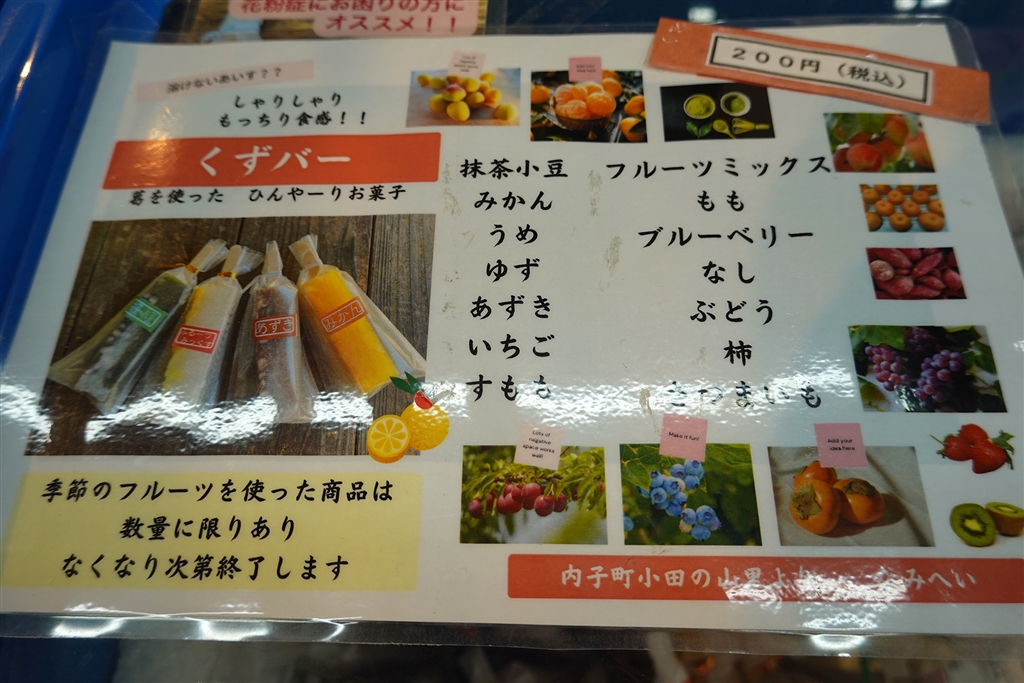 花粉症にお困りの方に
オススメ！！
200円（税込）
溶けないあいす？？
しゃりしゃり
もっちり食感！！
くずバー
葛を使った ひんやーりお菓子
あずき
みかん
抹茶小豆
みかん
うめ
ゆず
あずき
いちご
すもも
フルーツミックス
もも
ブルーベリー
なし
ぶどう
柿
さつまいも
Lots of
negative
space works
well!
Make it fun!
Add your
idea here
季節のフルーツを使った商品は
数量に限りあり
なくなり次第終了します
内子町小田の山里より みへい